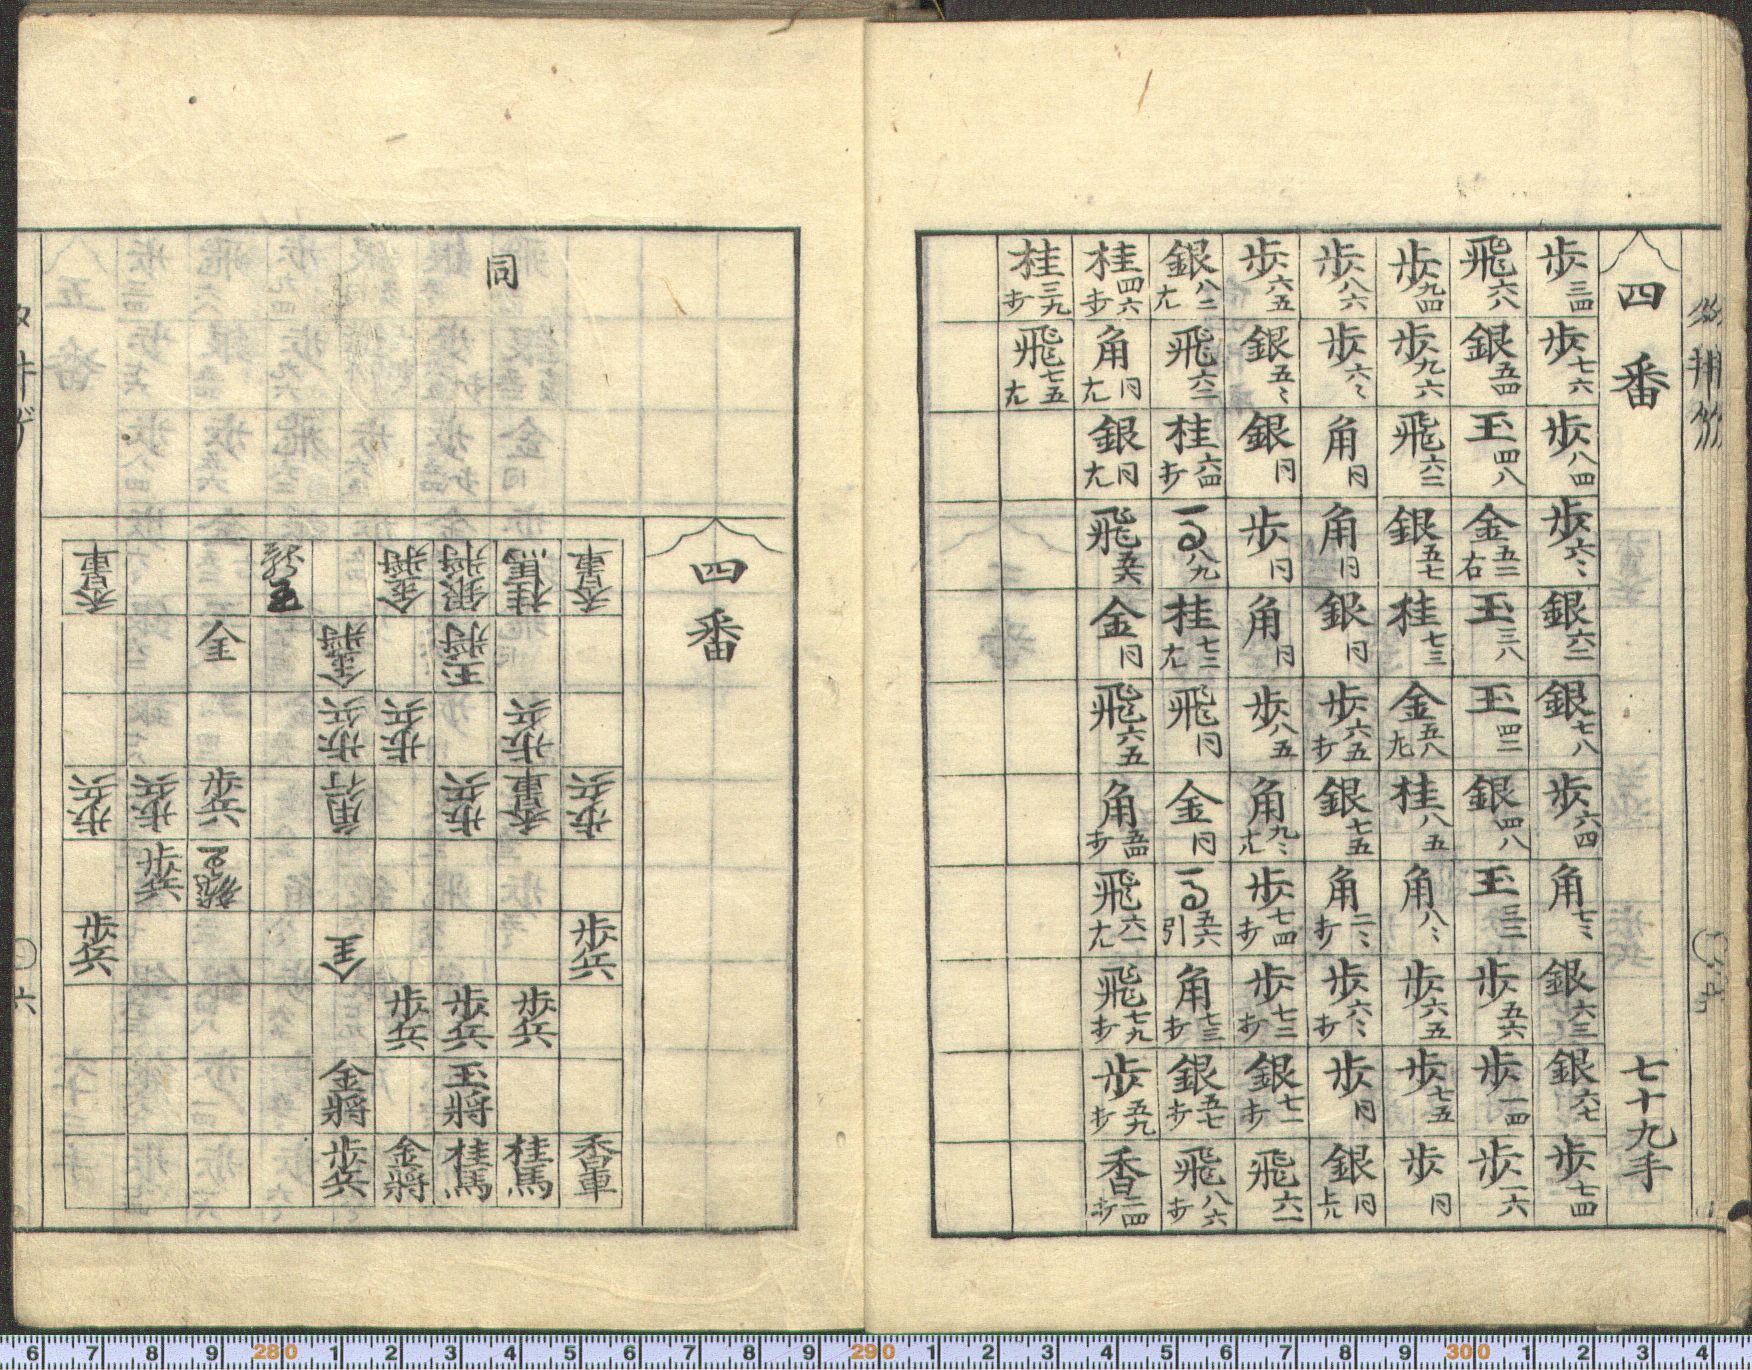 四番 七十九手
歩三四 歩七六 歩八四 歩六〻 銀六二 銀七八 歩六四 角七〻 銀六三 銀六七 歩七四
飛六八 銀五四 玉四八 金五二右 玉三八 玉四二 銀四八 玉三二 歩五六 歩一四 歩一六
歩九四 歩九六 飛六二 銀五七 桂七三 金五八左 桂八五 角八〻 歩六五 歩七五 歩同
歩八六 歩六〻 角同 角同 銀同 歩六五打 銀七五 角二〻打 歩六〻打 歩同 銀同上
歩六五 銀五〻 銀同 歩同 角同 歩八五 角九〻成 歩七四打 歩七二打 銀七一打 飛六一
銀八二成 飛六二 桂六四打 马八九 桂七二成 飛同 金同 马五六引 角七三打 銀五七打 飛八六打
桂四六打 角同成 銀同成 飛五六 金同 飛六五 角五四打 飛六一成 飛七九打 歩五九打 香二四打
桂三九打 飛七五成
同
四番
香車 桂馬 銀將 金將 玉 香車
玉將 金將 全
歩兵 歩兵 歩兵
歩兵 香車 歩兵 角行 歩兵 歩兵 歩兵
歩兵
歩兵 全 歩兵
歩兵 歩兵 歩兵
玉將 金將
香車 桂馬 桂馬 金將 歩兵
六